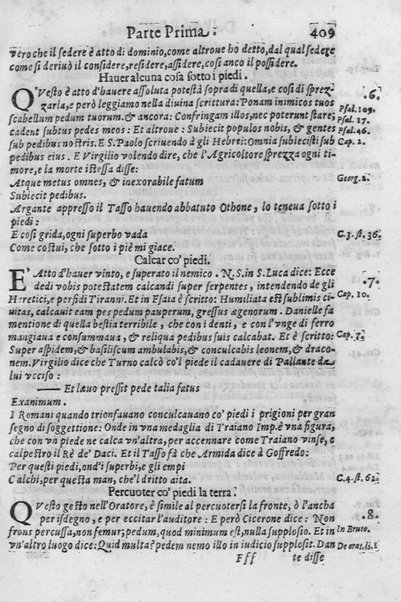 Parte Prima. 409
vero che il sedere è atto di dominio, come altroue ho detto, dal qual sedere
come si deriuò il considere, residere, assidere, cosi anco il possidere.
Hauer alcuna cosa sotto i piedi.
QVesto è atto d'hauere assoluta potestà sopra di quella, e cosi di sprez- .6.
zarla, e però leggiamo nella diuina scrittura: Ponam inimicos tuos Psal. 109.
scabellum pedum tuorum. & ancora: Confringam illos, nec poterunt stare; Psal. 17.
cadent subtus pedes meos: Et altroue: Subiecit populos nobis, & gentes Psal. 46.
sub pedibus nostris. E S. Paolo scriuendo à gli Hebrei: Omnia subiecisti sub Cap. 2.
pedibus eius. E Virgilio volendo dire, che l'Agricoltore sprezza ogni ti-
more, e la morte istessa disse:
Atque metus omnes, & inexorabile fatum Georg. 2.
Subiecit pedibus.
Argante appresso il Tasso hauendo abbatuto Othone, lo teneua sotto i
piedi:
E cosi grida, ogni superbo vada C. 3. st. 36.
Come costui, che sotto i piè mi giace.
Calcar co' piedi.
E' Atto d'hauer vinto, e superato il nemico. N. S. in S. Luca dice: Ecce .7.
dedi vobis potestatem calcandi super serpentes, intendendo de gli
Heretici, e perfidi Tiranni. Et in Esaia è scritto: Humiliata est sublimis ci- Cap. 10.
uitas, calcauit eam pes pedum pauperum, gressus ægenorum. Danielle fa
mentione di quella bestia terribile, che con i denti, e con l'vnge di ferro
mangiaua e consummaua, & reliqua pedibus suis calcabat. Et è scritto: Cap. 7.
Super aspidem, & basiliscum ambulabis, & conculcabis leonem, & draco-
nem. Virgilio dice che Turno calcò co'l piede il cadauere di Pallante da
lui vcciso:
— Et læuo pressit pede talia fatus
Examinum.
I Romani quando trionfauano conculcauano co' piedi i prigioni per gran
segno di soggettione: Onde in vna medaglia di Traiano Imp. è vna figura,
che con vn piede ne calca vn'altra, per accennare come Traiano vinse, e
calpestro il Rè de' Daci. Et il Tasso fà che Armida dice à Goffredo:
Per questi piedi, ond'i superbi, e gli empi
Calchi, per questa man, che'l dritto aita. C. 4. st. 62.
Percuoter co' piedi la terra.
QVesto gesto nell'Oratore, è simile al percuotersi la fronte, ò l'ancha .8.
per isdegno, e per eccitar l'auditore: E però Cicerone dice: Non
frons percussa, non femur; pedum, quod minimum est, nulla supplosio. Et in In Bruto.
vn'altro luogo dice: Quid multa? pedem nemo illo in iudicio supplosit. Dan De orat. li. 1
Fff te disse